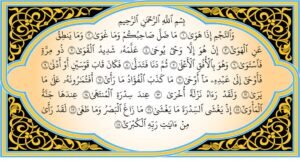 بِسْمِ ٱللَّهِ ٱلرَّحْمَٰنِ ٱلرَّحِيمِ
وَٱلنَّجْمِ إِذَا هَوَىٰ ۝١ مَا ضَلَّ صَاحِبُكُمْ وَمَا غَوَىٰ ۝٢ وَمَا يَنطِقُ
عَنِ ٱلْهَوَىٰ ۝٣ إِنْ هُوَ إِلَّا وَحْىٌ يُوحَىٰ ۝٤ عَلَّمَهُۥ شَدِيدُ ٱلْقُوَىٰ ۝٥ ذُو مِرَّةٍ
فَٱسْتَوَىٰ ۝٦ وَهُوَ بِٱلْأُفُقِ ٱلْأَعْلَىٰ ۝٧ ثُمَّ دَنَا فَتَدَلَّىٰ ۝٨ فَكَانَ قَابَ قَوْسَيْنِ أَوْ أَدْنَىٰ ۝٩
فَأَوْحَىٰٓ إِلَىٰ عَبْدِهِۦ مَآ أَوْحَىٰ ۝١٠ مَا كَذَبَ ٱلْفُؤَادُ مَا رَأَىٰٓ ۝١١ أَفَتُمَٰرُونَهُۥ عَلَىٰ مَا
يَرَىٰ ۝١٢ وَلَقَدْ رَءَاهُ نَزْلَةً أُخْرَىٰ ۝١٣ عِندَ سِدْرَةِ ٱلْمُنتَهَىٰ ۝١٤ عِندَهَا جَنَّةُ
ٱلْمَأْوَىٰٓ ۝١٥ إِذْ يَغْشَى ٱلسِّدْرَةَ مَا يَغْشَىٰ ۝١٦ مَا زَاغَ ٱلْبَصَرُ وَمَا طَغَىٰ ۝١٧ لَقَدْ رَأَىٰ
مِنْ ءَايَٰتِ رَبِّهِ ٱلْكُبْرَىٰٓ ۝١٨